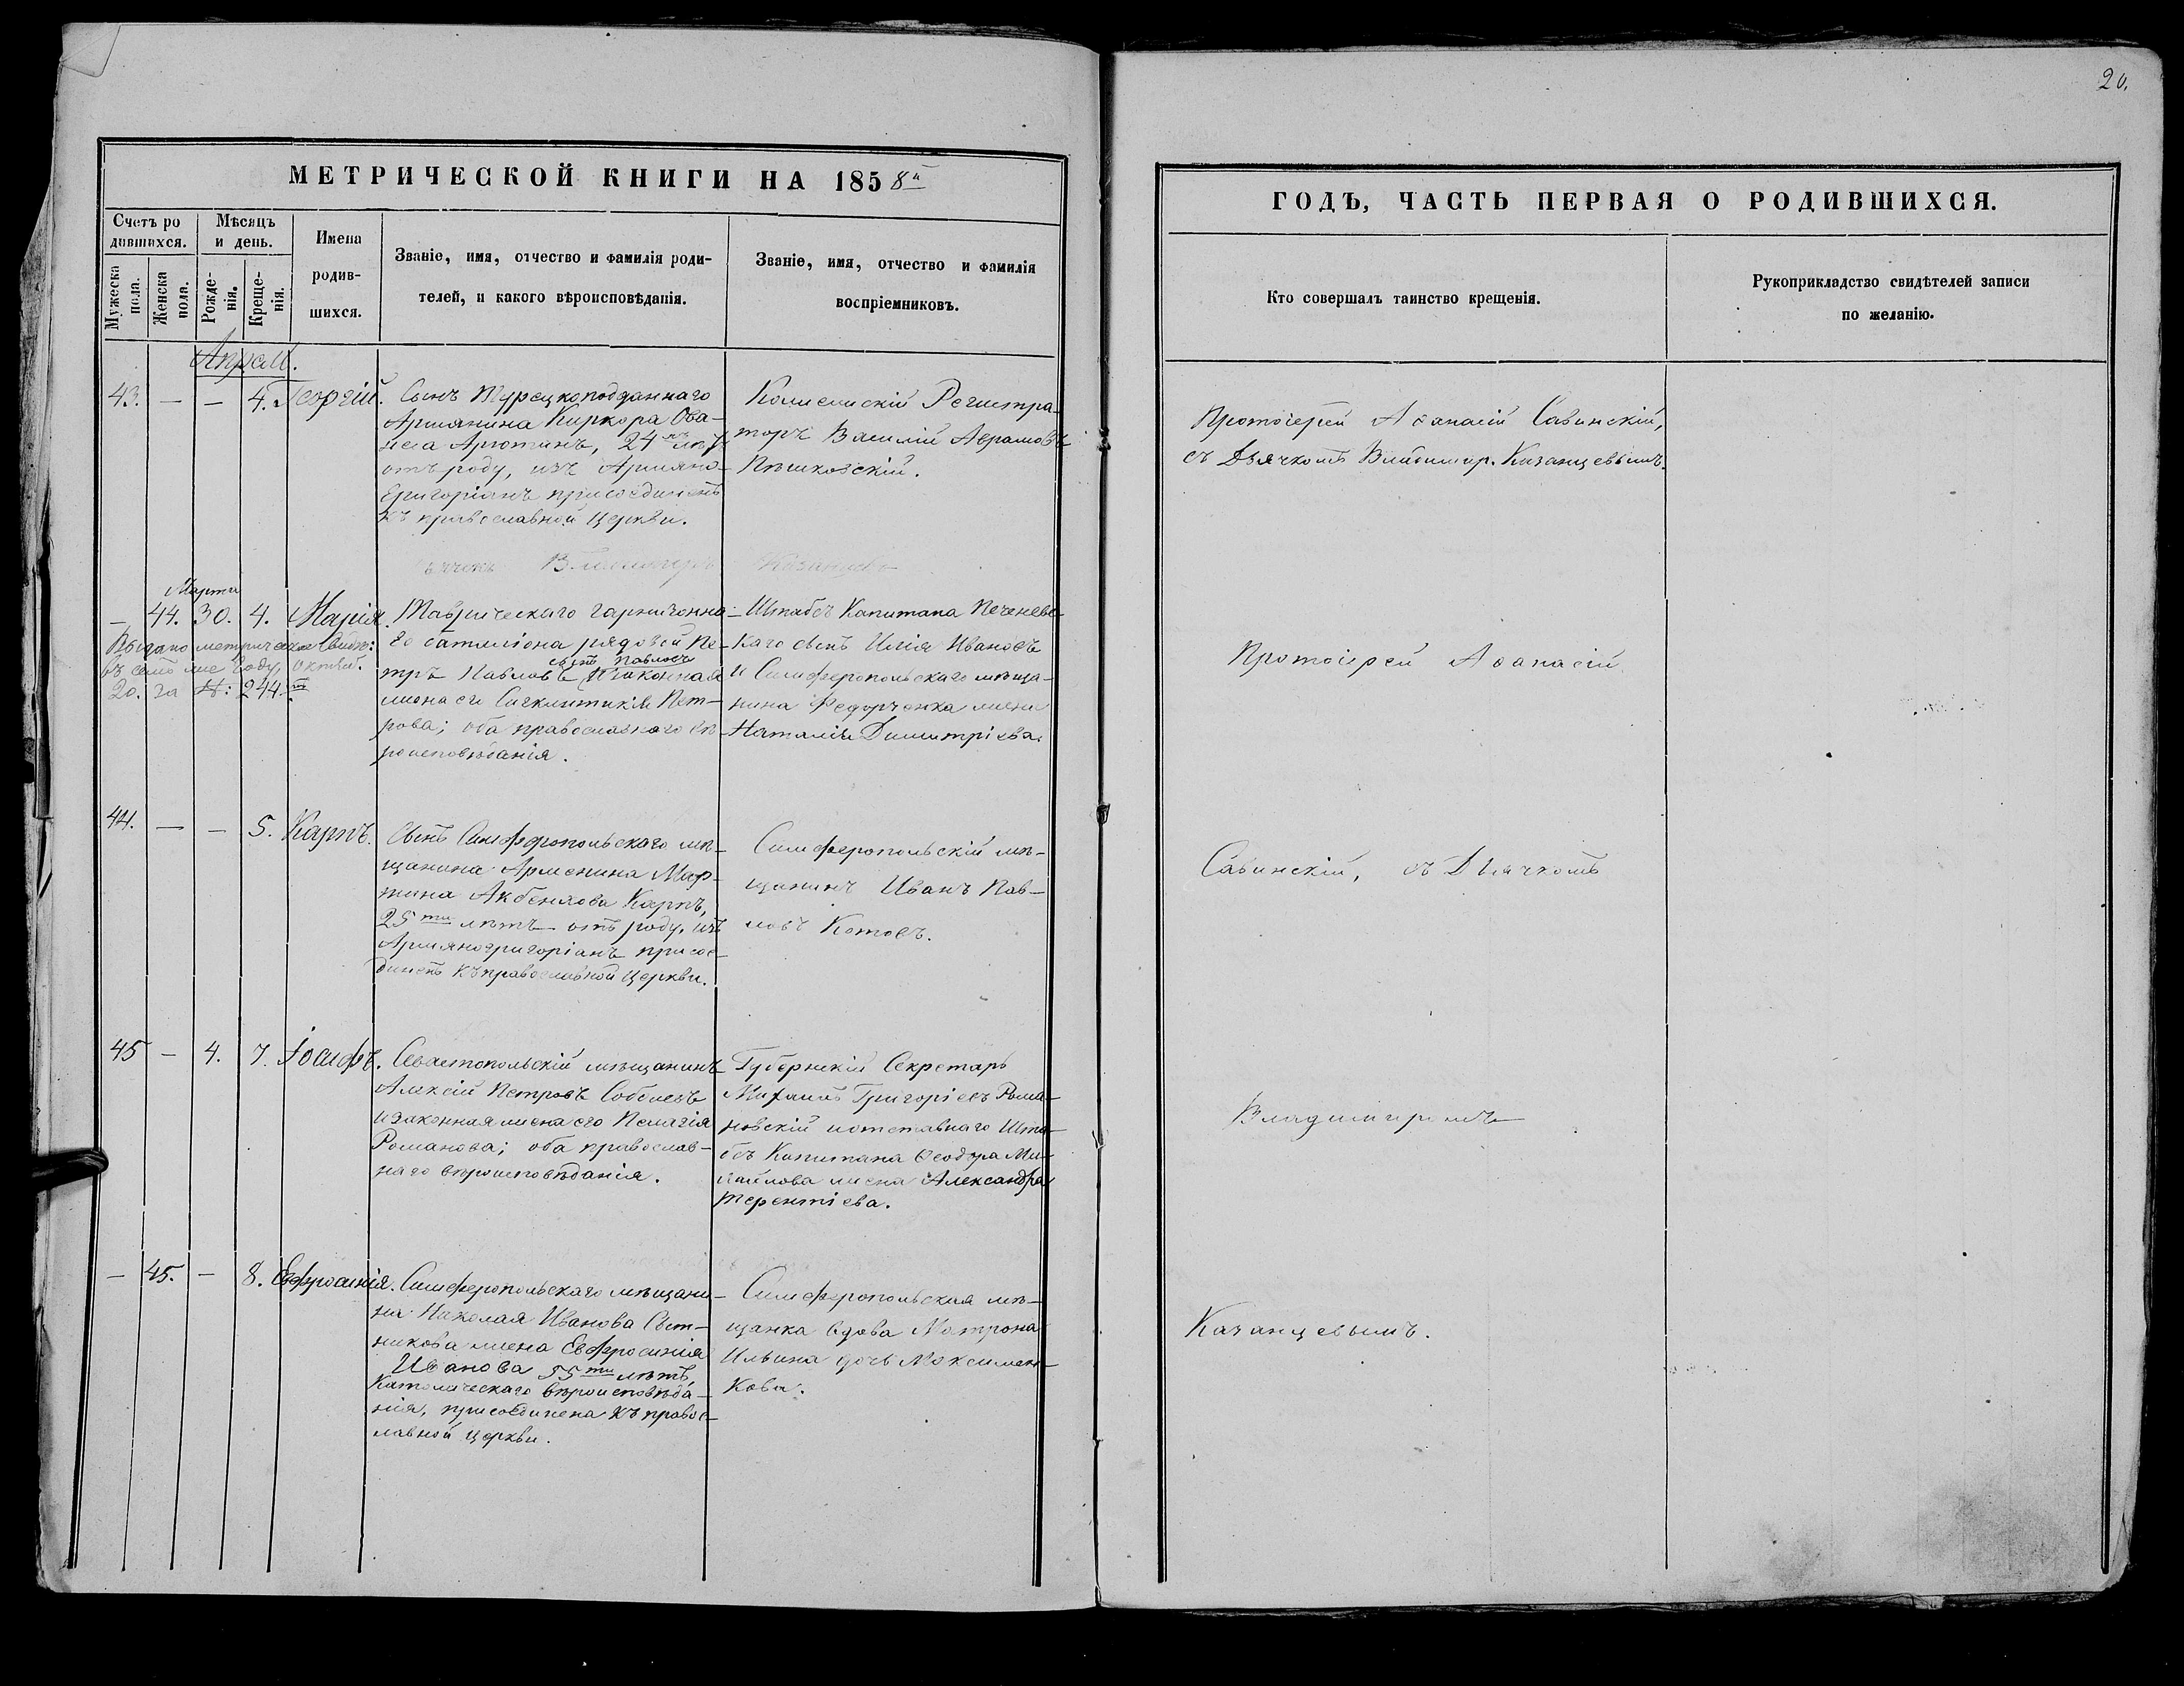 20.
МЕТРИЧЕСКОЙ КНИГИ НА 1858й
Счетъ ро
дившихся.
Мѣсяцъ
и день.
Мужеска
пола.
Женска
пола.
Рожде-
нія.
Креще-
нія.
Имена
родив-
шихся.
Званіе, имя, отчество и фамилія роди-
телей, и какого вѣроисповѣданія.
Званіе, имя, отчество и фамилія
воспріемниковъ.
Апрѣль.
43. — — 4. Георгій.
Сынъ Турецкоподданнаго
Армянина Киркора Ова-
неса Арютинъ, 24 лѣтъ
отъ роду, изъ Армяно-
Григоріанъ присоединенъ
къ православной церкви.
Колежскій Регистра-
торъ Василій Аврамовъ
Пѣшковскій.
Владимиръ Казанцевъ
Марта
— 44. 30. 4. Марія.
Выдано метрическое свидѣ:
въ семъ же году, Октяб.
20. за №: 244.
Таврическаго гарнизонна-
го баталіона рядовой Пе-
тръ Павловъ сынъ Павловъ и законная
жена его Синклитикія Пет-
рова; оба православнаго вѣ-
роисповѣданія.
Штабсъ Капитана Печеневс-
каго сынъ Илія Ивановъ
и Симферопольскаго мѣща-
нина Федорченка жена
Наталія Димитріева.
44. — — 5. Карпъ.
Сынъ Симферопольскаго мѣ-
щанина Арменина Мар-
тина Акбенлова Карпъ,
25ти лѣтъ отъ роду, изъ
Армяногригоріанъ присое-
диненъ къ православной церкви.
Симферопольскій мѣ-
щанинъ Иванъ Пав-
ловъ Котовъ.
45 — 4. 7. Іосифъ.
Севастопольскій мѣщанинъ
Алексій Петровъ Соболевъ
и законная жена его Пелагія
Романова; оба православ-
наго вѣроисповѣданія.
Губернскій Секретарь
Михаилъ Григоріевъ Рома-
новскій и отставнаго Шта-
бсъ Капитана Ѳеодора Ми-
хайлова жена Александра
Терентіева.
— 45. — 8. Евфросинія.
Симферопольскаго мѣщани-
на Николая Иванова Сыт-
никова жена Евфросинія
Иванова 55ти лѣтъ,
Католическаго вѣроисповѣда-
нія, присоединена къ правос-
лавной церкви.
Симферопольская мѣ-
щанка вдова Матрона
Ильина дочь Максимен-
кова.
ГОДЪ, ЧАСТЬ ПЕРВАЯ О РОДИВШИХСЯ.
Кто совершалъ таинство крещенія.
Рукоприкладство свидѣтелей записи
по желанію.
Протоіерей Аѳанасій Савинскій,
съ Дьячкомъ Владимир. Казанцевымъ.
Протоіерей Аѳанасій
Савинскій, съ Дьячкомъ
Владимиромъ
Казанцевымъ.